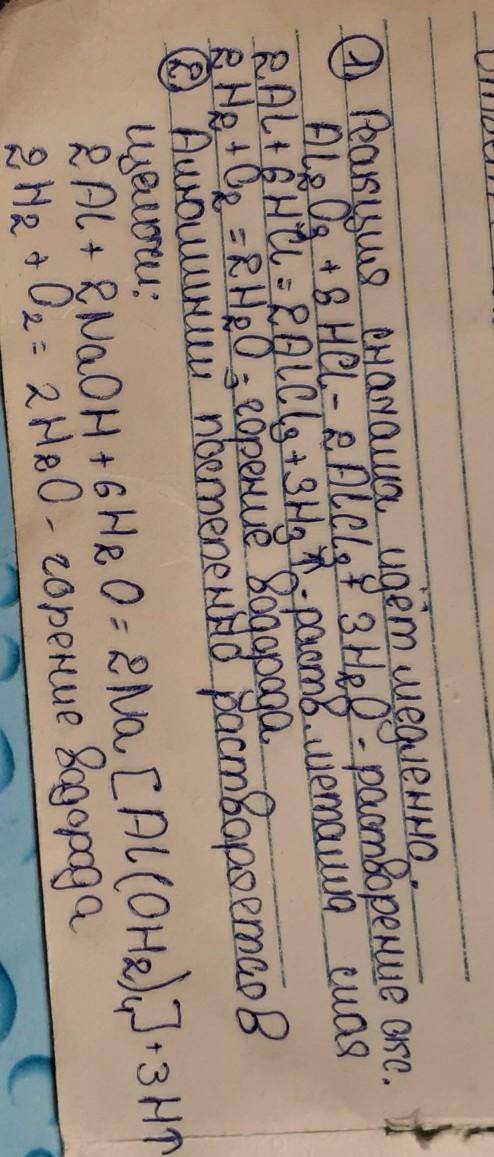 ① Реакция сначала идёт медленно.
Al₂O₃ + 6HCl = 2AlCl₃ + 3H₂O - растворение окс.
2Al + 6HCl = 2AlCl₃ + 3H₂↑ - раств. металла
2H₂ + O₂ = 2H₂O - горение водорода
② Алюминий постепенно растворяется в
щелочи:
2Al + 2NaOH + 6H₂O = 2Na[Al(OH₂)₄] + 3H↑
2H₂ + O₂ = 2H₂O - горение водорода